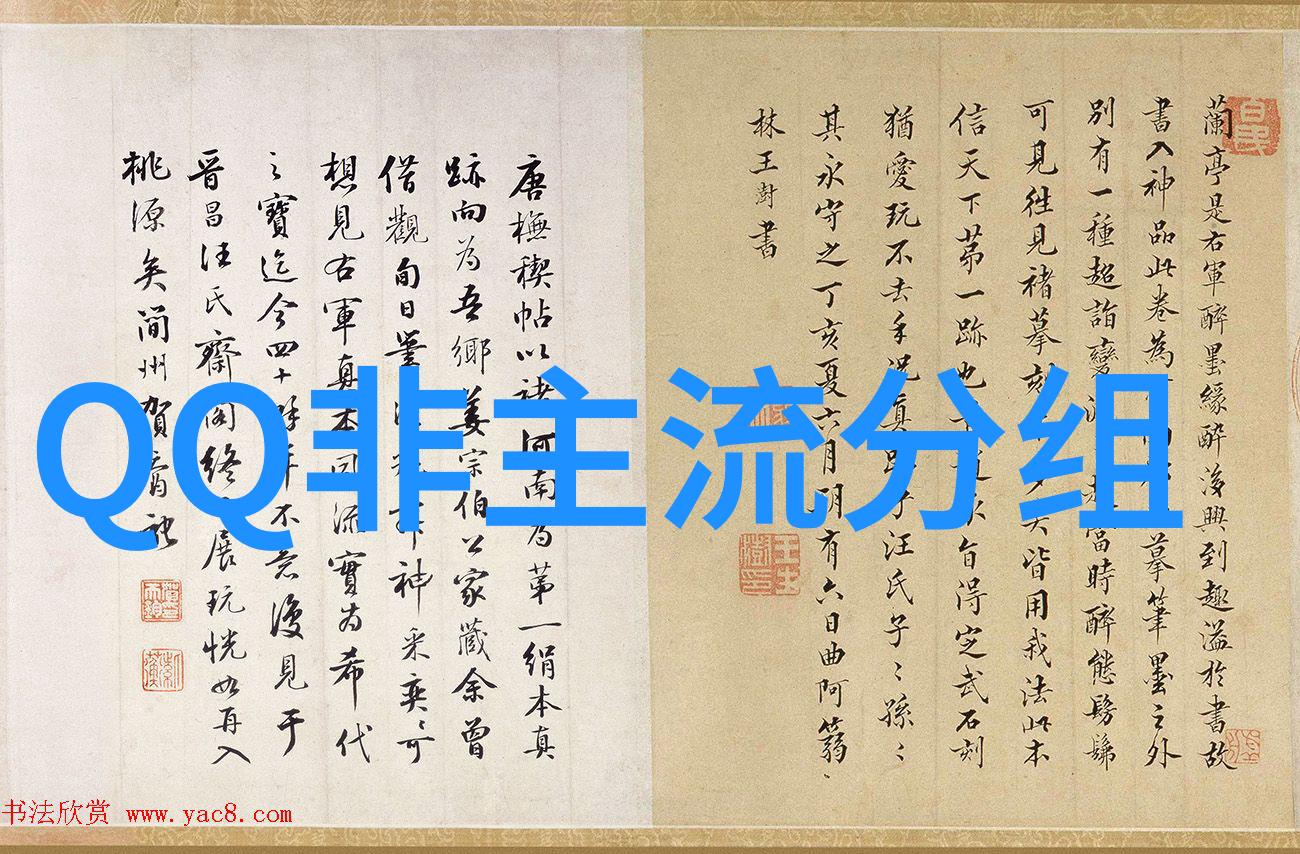 QQ非主流分组
蘭亭是右軍醉墨緣醉後興到趣溢於書故
書入神品此卷為摹筆墨之外
別有一種超詣變當時醉態髣髴
可見往見褚摹刻皆用我法此本
信天下第一跡也自得定武石刻
猶愛玩不去手況真跡乎汪氏子〻孫〻
其永守之丁亥夏六月朔有六日曲阿篛
林王澍書
唐橅稧帖以褚河南為第一絹本真
跡向為吾鄉姜宗伯公家藏余曾
借觀旬日神采奕〻可
想見右軍真本回流實為希代
之寶迄今四十年不意復見于
晉昌汪氏齋閣終展玩恍如再入
桃源矣簡州賀
书法欣赏 www.yac8.com